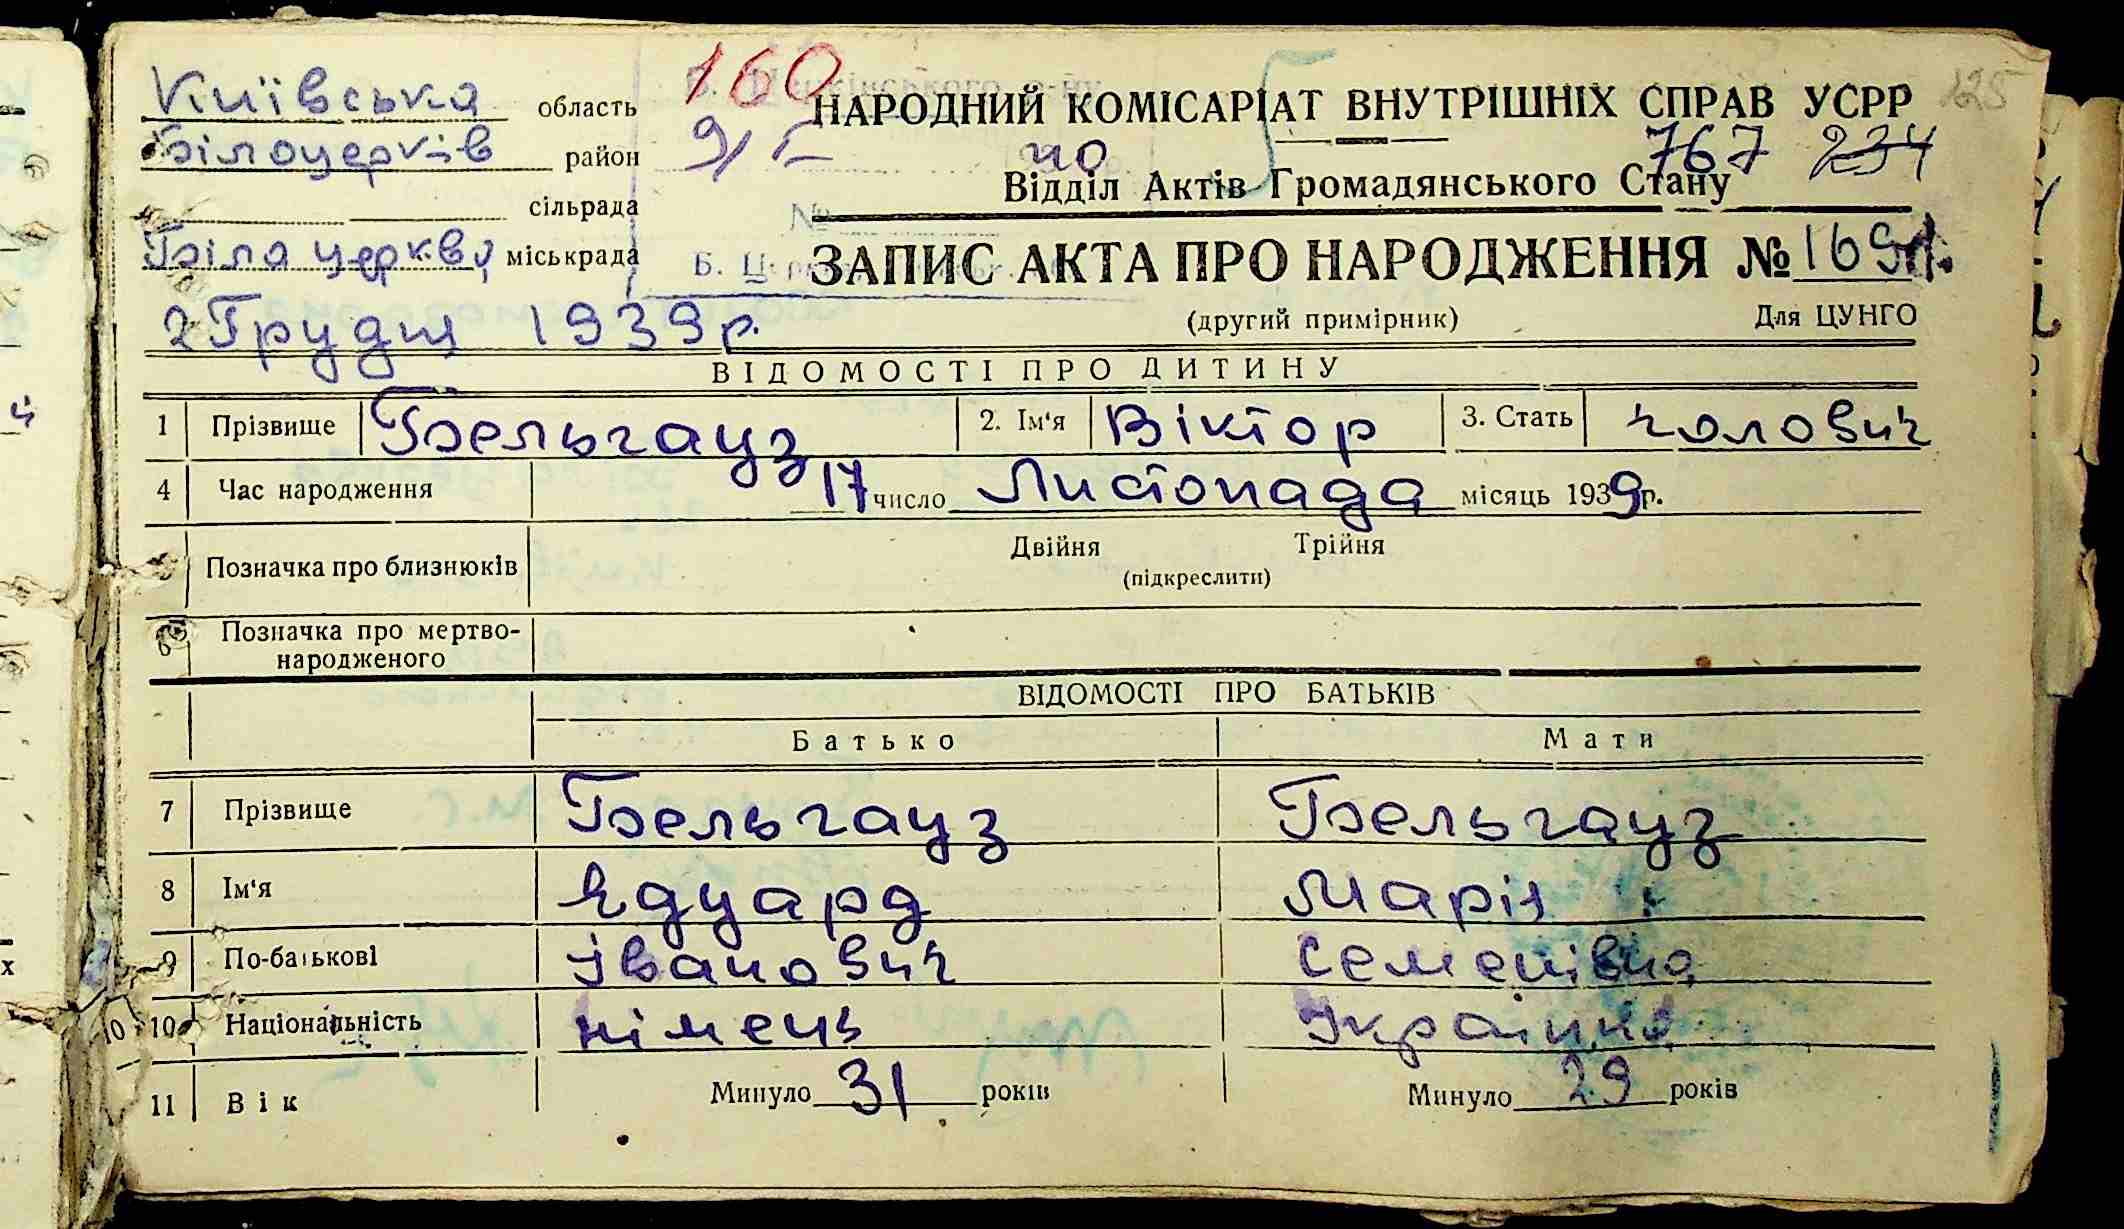 Київська область
160
НАРОДНИЙ КОМІСАРІАТ ВНУТРІШНІХ СПРАВ УСРР
225
Білоцерків район
767 234
Відділ Актів Громадянського Стану
сільрада
№
Біла церква міськрада
ЗАПИС АКТА ПРО НАРОДЖЕННЯ №
2 Грудня 1939 р.
(другий примірник) Для ЦУНГО
ВІДОМОСТІ ПРО ДИТИНУ
1 Прізвище Бельгауз 2. Ім'я Віктор 3. Стать чолович
4 Час народження 17 число Листопада місяць 1939 р.
Позначка про близнюків Двійня Трійня
(підкреслити)
6 Позначка про мертво-
народженого
ВІДОМОСТІ ПРО БАТЬКІВ
Батько Мати
7 Прізвище Бельгауз Бельгауз
8 Ім'я Едуард Марія
9 По-батькові Іванович Семенівна
10 Національність німець Українка
11 Вік Минуло 31 років Минуло 29 років